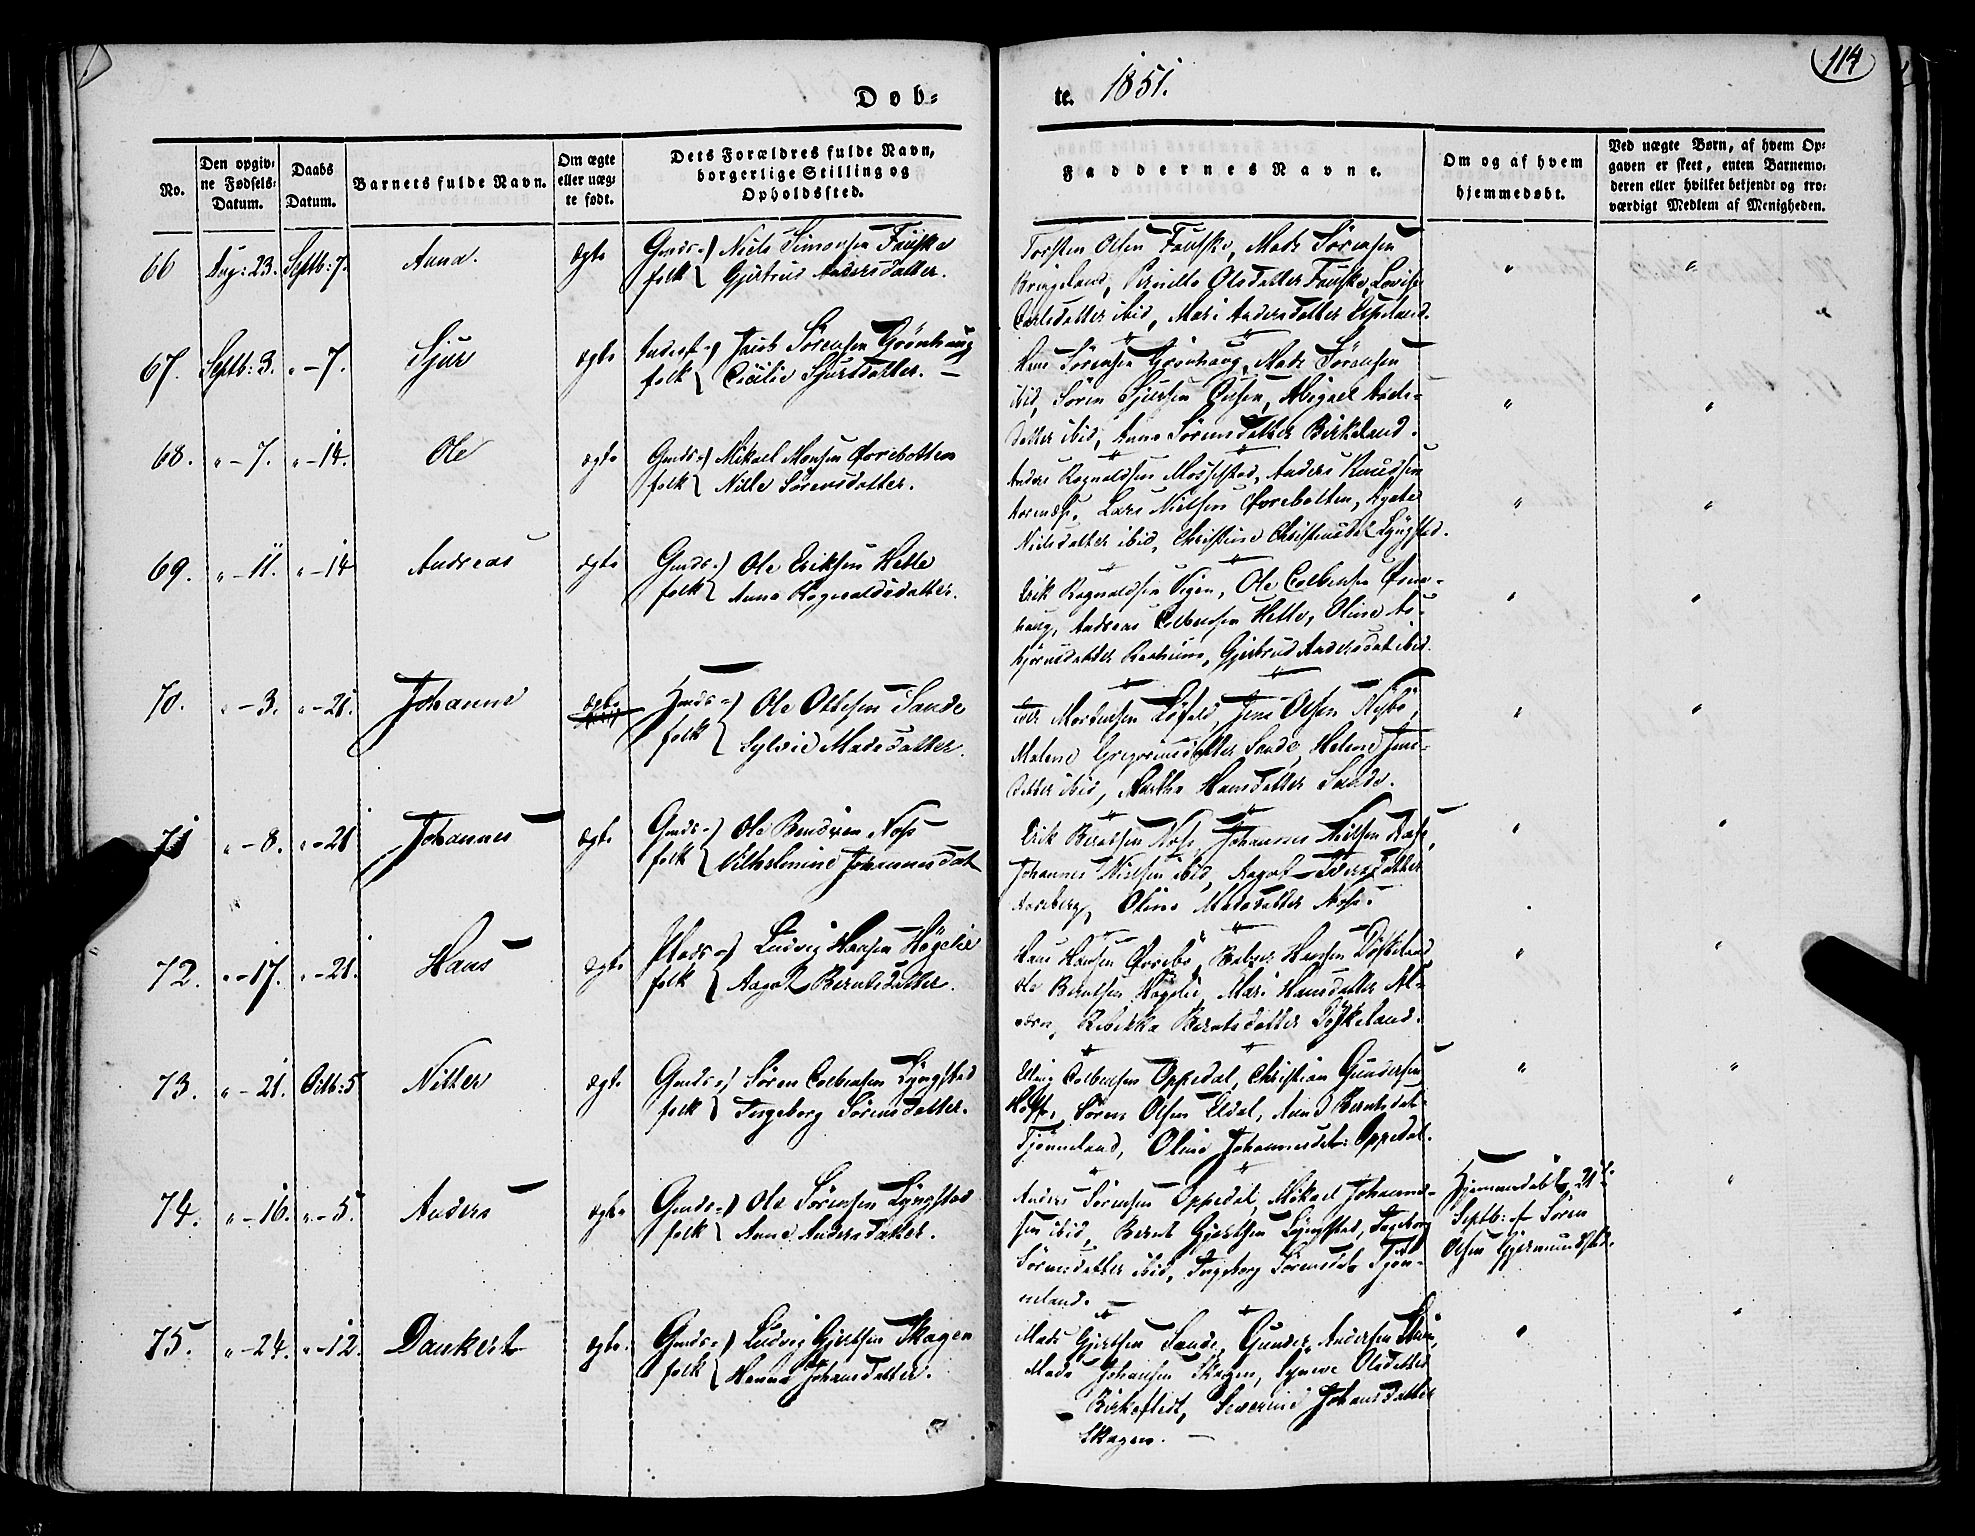 114
Dob-
te. 1851.
No.
Den opgiv-
ne Fødsels-
Datum.
Daabs
Datum.
Barnets fulde Navn.
Om ægte
eller uæg-
te født.
Dets Forældres fulde Navn,
borgerlige Stilling og
Opholdssted.
Faddernes Navne.
Om og af hvem
hjemmedøbt.
Ved uægte Børn, af hvem Op-
gaven er skeet, enten Barnemo-
deren eller hvilket bekjendt og tro-
værdigt Medlem af Menigheden.
66 Aug: 23. Septb: 7. Anna. ægte Gmds-folk Niels Simonsen Fauske
Gjertrud Andersdatter.
Torsten Olsen Fauske, Mads Sørensen
Bringeland, Pernille Olsdatter Fauske, Lovise
Carlsdatter ibid, Mari Andersdatter Espeland.
67. Septb: 3. " - 7. Sjur ægte Inderst-folk Jacob Sørensen Grønhaug
Cicilie Sjursdatter. -
Hans Sørensen Grønhaug, Mads Sørensen
ibid, Søren Sjursen Abigael
datter ibid, Anne Sørensdatter Birkeland.
68. " - 7. " - 14. Ole ægte Gmds-folk Mikael Monsen Øvrebotten
Nille Sørensdatter.
Anders Rognaldsen Anders Knudsen
Lars Nielsen Øvrebotten, Agate
Nielsdatter ibid, Christine Christensdat Lyngstad.
69. " - 11. " - 14 Andreas ægte Gmds-folk Ole Eriksen Hetle
Anna Rognaldsdatter.
Erik Rognaldsen Vigen, Ole Colbensen
haug, Andreas Colbensen Hetle, Oline As-
bjørnsdatter Gjertrud Andersdat ibid.
70. " - 3. " - 21. Johanne ægte Hmds-folk Ole Ottesen Sande
Sylvie Madsdatter.
Iver Mortensen Løfald, Jens Olsen Nybø,
Malene Gregoriusdatter Sande, Helene Jens-
datter ibid, Martha Hansdatter Sande.
71 " - 8. " - 21 Johannes ægte Gmds-folk Ole Bendixen Noss
Vilhelmine Johannesdat
Erik Berntsen Noss, Johannes Nielsen
Johannes Nielsen ibid, Aagot Iversdatter
Oline Madsdatter Noss.
72. " - 17. " - 21. Hans ægte Plads-folk Ludvig Hansen Høgelie
Aagot Berntsdatter.
Hans Hansen Øvrebø, Balzer Hansen Døskeland,
Ole Berntsen Høgelie, Mari Hansdatter Al-
Rebekka Berntsdatter Døskeland.
73. " - 21. Octb: 5 Nitter ægte Gmds-folk Søren Colbensen Lyngstad
Ingeborg Sørensdatter.
Elling Colbensen Oppedal, Christian Gundersen
Søren Olsen Eldal, Anne Berntsdat-
Tjønneland, Oline Johannesdat: Oppedal.
74. " - 16. " - 5. Anders ægte Gmds-folk Ole Sørensen Lyngstad
Anne Andersdatter.
Anders Sørensen Oppedal, Mikael Johannes-
sen ibid, Bernt Gjertsen Lyngstad, Ingeborg
Sørensdatter ibid, Ingeborg Sørensdat Tjøn-
neland.
Hjemmedøbt 21de
Septb: af Søren
Olsen Gjermundstad.
75. " - 24. " - 12. Dankert ægte Gmds-folk Ludvig Gjertsen Skagen
Hanna Johansdatter.
Mads Gjertsen Sande, Gunder Andersen
Mads Johansen Skagen, Synneve Olsdatter
Birkeflott, Severine Johansdatter
Skagen.